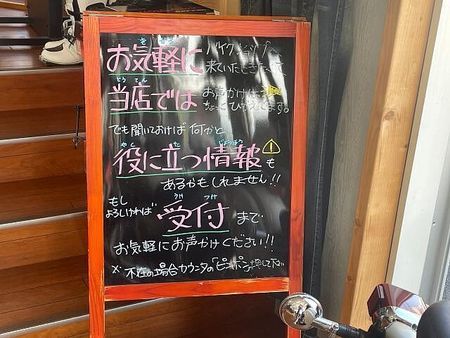 お気軽に バイクショップへ
来ていただきたくて、
当店では お声かけは
ちょっとひかえてます。
でも聞いておけば 何かと
役に立つ情報も
あるかもしれません!!
もし
よろしければ 受付まで
お気軽にお声かけください!!
※ 不在の場合カウンターの「ピンポン」押して下さい